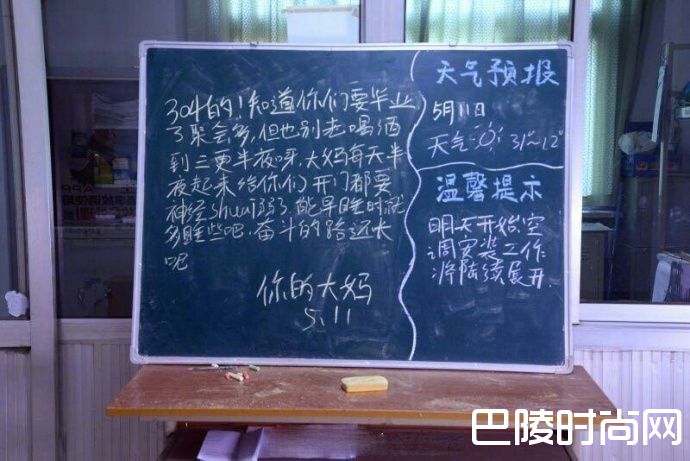 304的!知道你们要毕业
了聚会多,但也别去喝酒
到三更半夜呀,大妈每天半
夜起来给你们开门都要
神经shuai弱了,能早睡时就
多睡些吧,奋斗的路还长
呢
你的大妈
5.11
天气预报
5月11日
天气 31~12°
温馨提示
明天开始,空
调安装工作
将陆续展开
巴陵时尚网